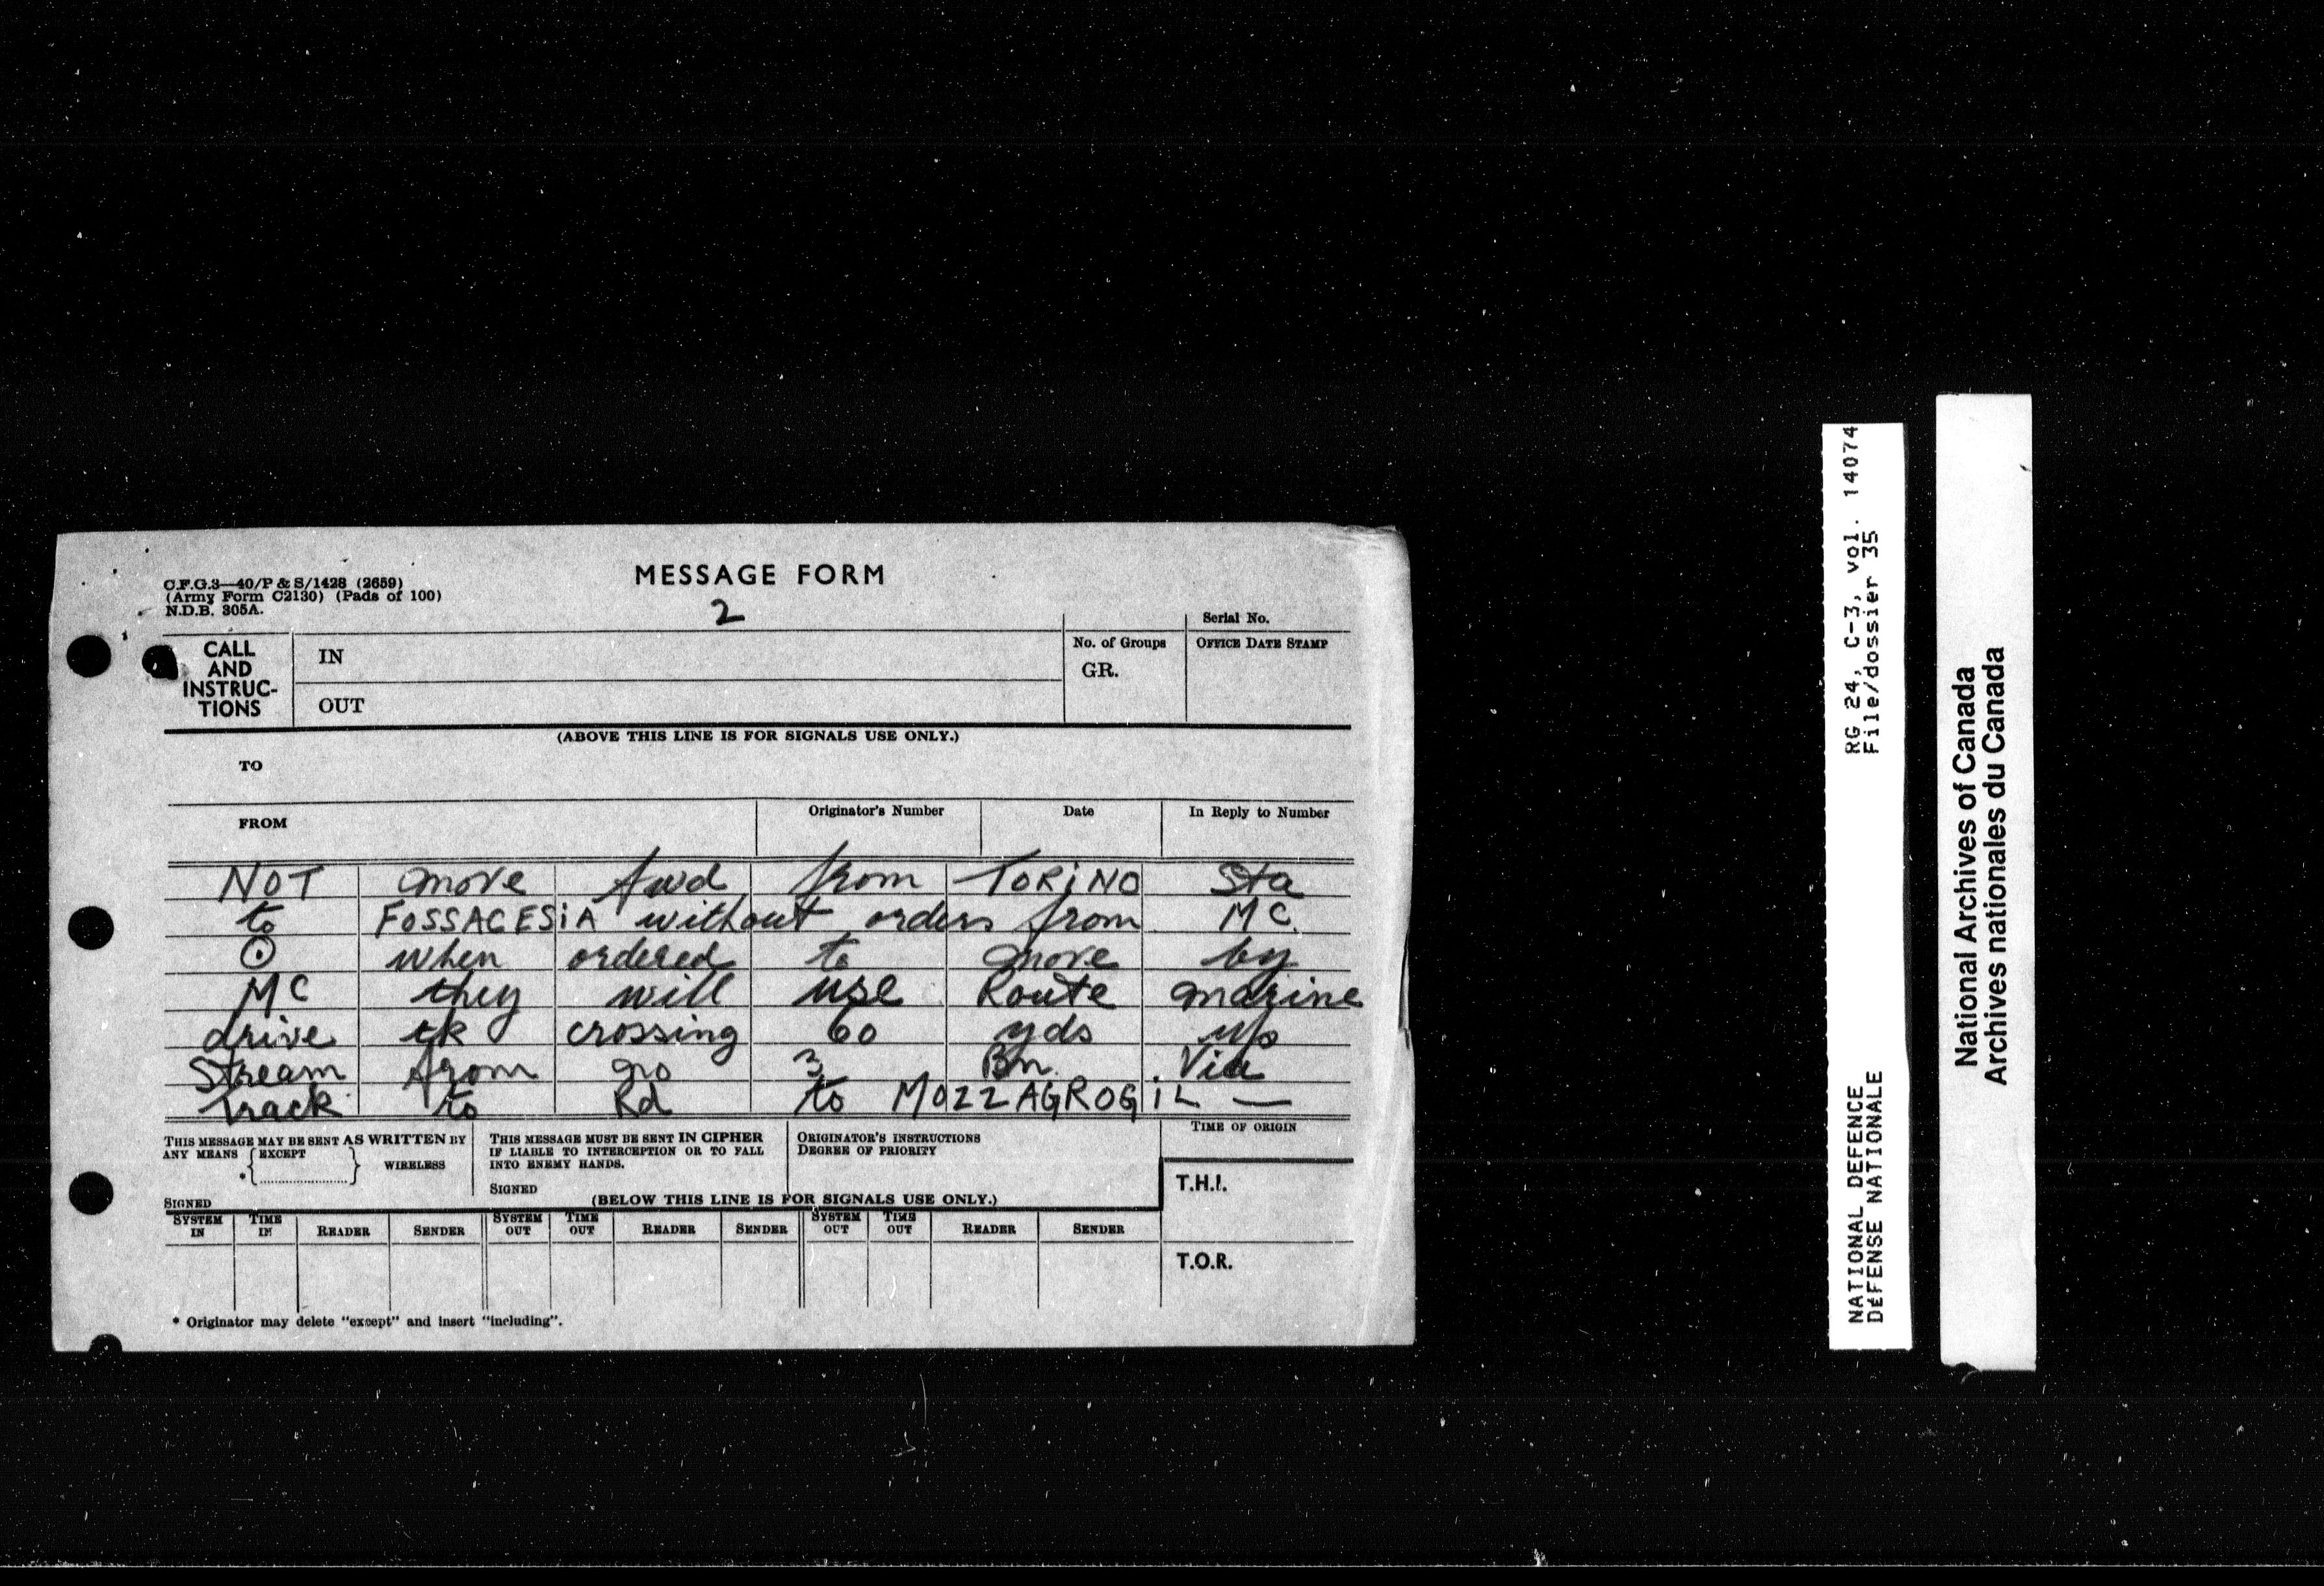 MESSAGE FORM
C.F.G.3—40/P & S/1428 (2659)
(Army Form C2130) (Pads of 100)
N.D.B. 305A.
2
Serial No.
CALL AND INSTRUC-TIONS
IN
No. of Groups
GR.
OFFICE DATE STAMP
OUT
(ABOVE THIS LINE IS FOR SIGNALS USE ONLY.)
TO
FROM
Originator's Number
Date
In Reply to Number
NOT move fwd from TORiNO Sta
to FOSSACESiA without orders from MC.
⊙ when ordered to move by
MC they will use Route marine
drive tk crossing 60 yds up
Stream from no 3 Bn. Via
track to Rd to MOZZAGROGiL —
THIS MESSAGE MAY BE SENT AS WRITTEN BY
ANY MEANS
EXCEPT
*{..................} WIRELESS
SIGNED
THIS MESSAGE MUST BE SENT IN CIPHER
IF LIABLE TO INTERCEPTION OR TO FALL
INTO ENEMY HANDS.
SIGNED
ORIGINATOR'S INSTRUCTIONS
DEGREE OF PRIORITY
TIME OF ORIGIN
T.H.I.
(BELOW THIS LINE IS FOR SIGNALS USE ONLY.)
SYSTEM IN TIME IN READER SENDER SYSTEM OUT TIME OUT READER SENDER SYSTEM OUT TIME OUT READER SENDER
T.O.R.
* Originator may delete "except" and insert "including".
NATIONAL DEFENCE RG 24, C-3, vol. 14074
DÉFENSE NATIONALE File/dossier 35
National Archives of Canada
Archives nationales du Canada